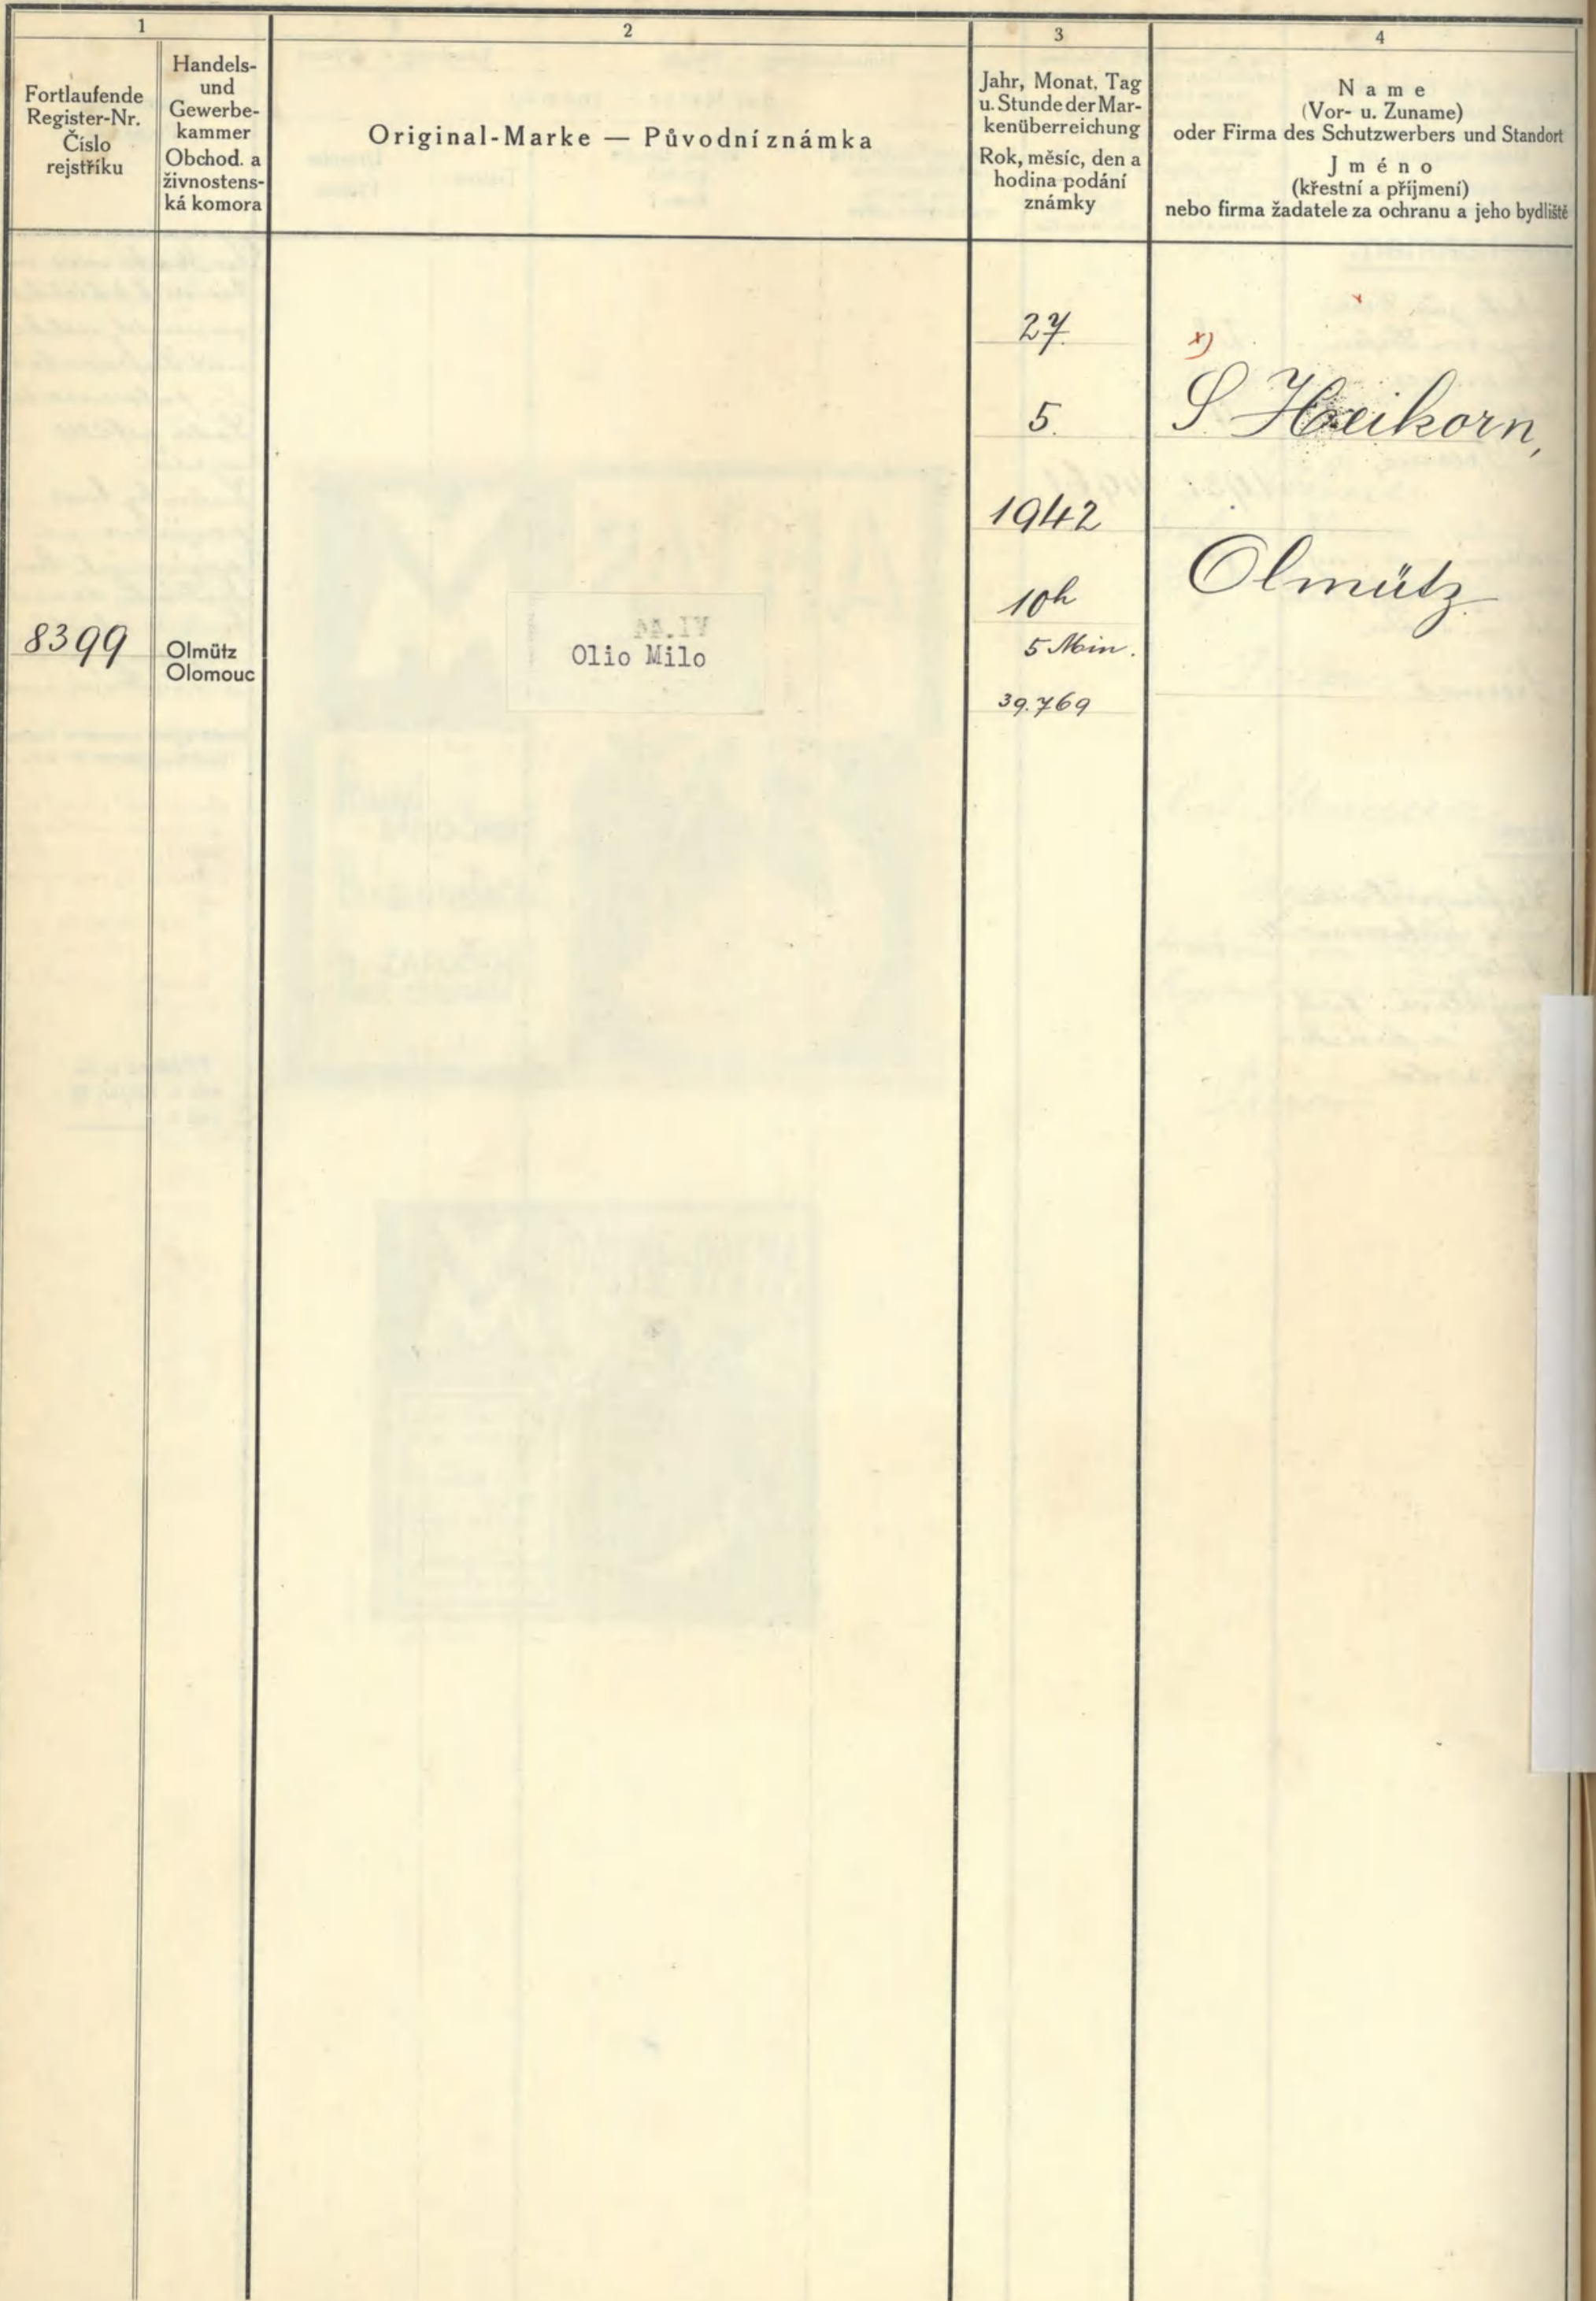 1
2
3
4
Fortlaufende
Register-Nr.
Číslo
rejstříku
Handels-
und
Gewerbe-
kammer
Obchod. a
živnostens-
ká komora
Original-Marke — Původní známka
Jahr, Monat, Tag
u. Stunde der Mar-
kenüberreichung
Rok, měsíc, den a
hodina podání
známky
Name
(Vor- u. Zuname)
oder Firma des Schutzwerbers und Standort
Jméno
(křestní a příjmení)
nebo firma žadatele za ochranu a jeho bydliště
8399
Olmütz
Olomouc
Olio Milo
27.
5.
1942
10h
5 Min.
39.769
x)
S. Heikorn,
Olmütz.